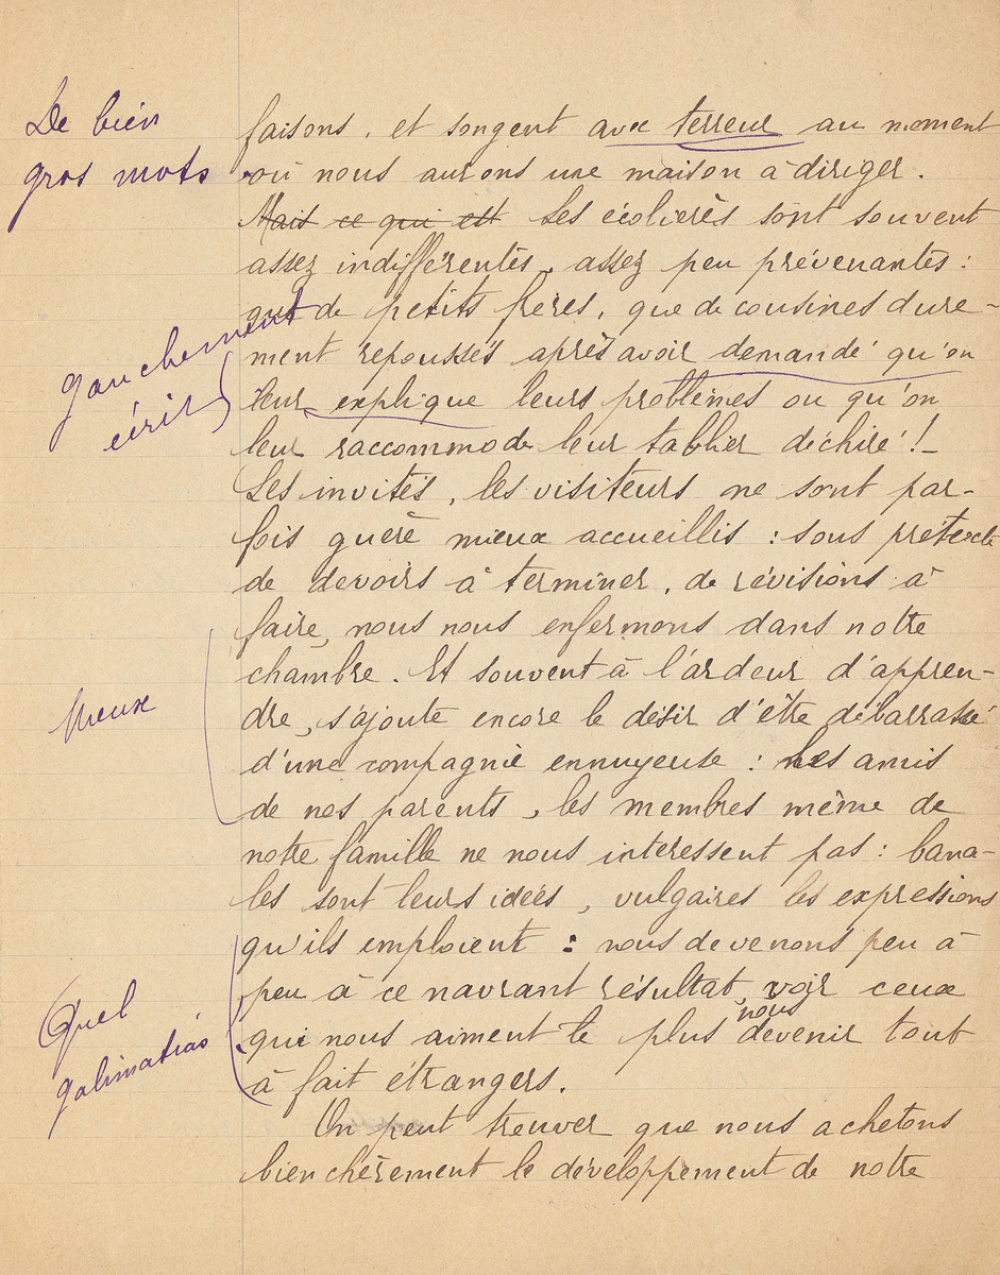 De bien
gros mots
faisons, et songent avec terreur au moment
où nous aurons une maison à diriger.
Mais ce qui est Les écolières sont souvent
assez indifférentes, assez peu prévenantes :
que de petits frères, que de cousines dure-
ment repoussés après avoir demandé qu'on
gauchement
écrit
leur explique leurs problèmes ou qu'on
leur raccommode leur tablier déchiré ! _
Les invités, les visiteurs ne sont par-
fois guère mieux accueillis : sous prétexte
de devoirs à terminer, de révisions à
faire, nous nous enfermons dans notre
chambre. Et souvent à l'ardeur d'appren-
Mieux
dre, s'ajoute encore le désir d'être débarrassé
d'une compagnie ennuyeuse : les amis
de nos parents, les membres même de
notre famille ne nous intéressent pas : bana-
les sont leurs idées, vulgaires les expressions
qu'ils emploient : nous devenons peu à
peu à ce navrant résultat, voir ceux
Quel
galimatias
qui nous aiment le plus nous devenir tout
à fait étrangers.
On peut trouver que nous achetons
bien chèrement le développement de notre